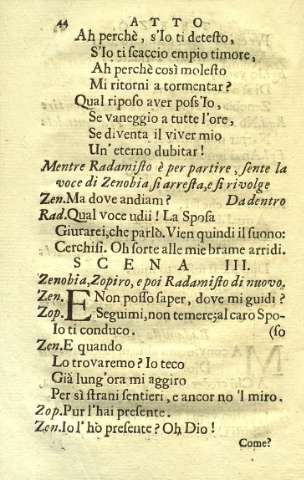 44 ATTO
Ah perchè, s'Io ti detesto,
S'Io ti scaccio empio timore,
Ah perchè così molesto
Mi ritorni a tormentar?
Qual riposo aver poss'Io,
Se vaneggio a tutte l'ore,
Se diventa il viver mio
Un' eterno dubitar!
Mentre Radamisto è per partire, sente la
voce di Zenobia, si arresta, e si rivolge
Zen. Ma dove andiam? Da dentro
Rad. Qual voce udii! La Sposa
Giurarei, che parlò. Vien quindi il suono:
Cerchisi. Oh sorte alle mie brame arridi.
SCENA III.
Zenobia, Zopiro, e poi Radamisto di nuovo.
Zen. E Non posso saper, dove mi guidi?
Zop. Seguimi, non temere; al caro Spo-
Io ti conduco. (so
Zen. E quando
Lo trovaremo? Io teco
Già lung'ora mi aggiro
Per sì strani sentieri, e ancor no 'l miro.
Zop. Pur l'hai presente.
Zen. Io l' hò presente? Oh Dio!
Come?